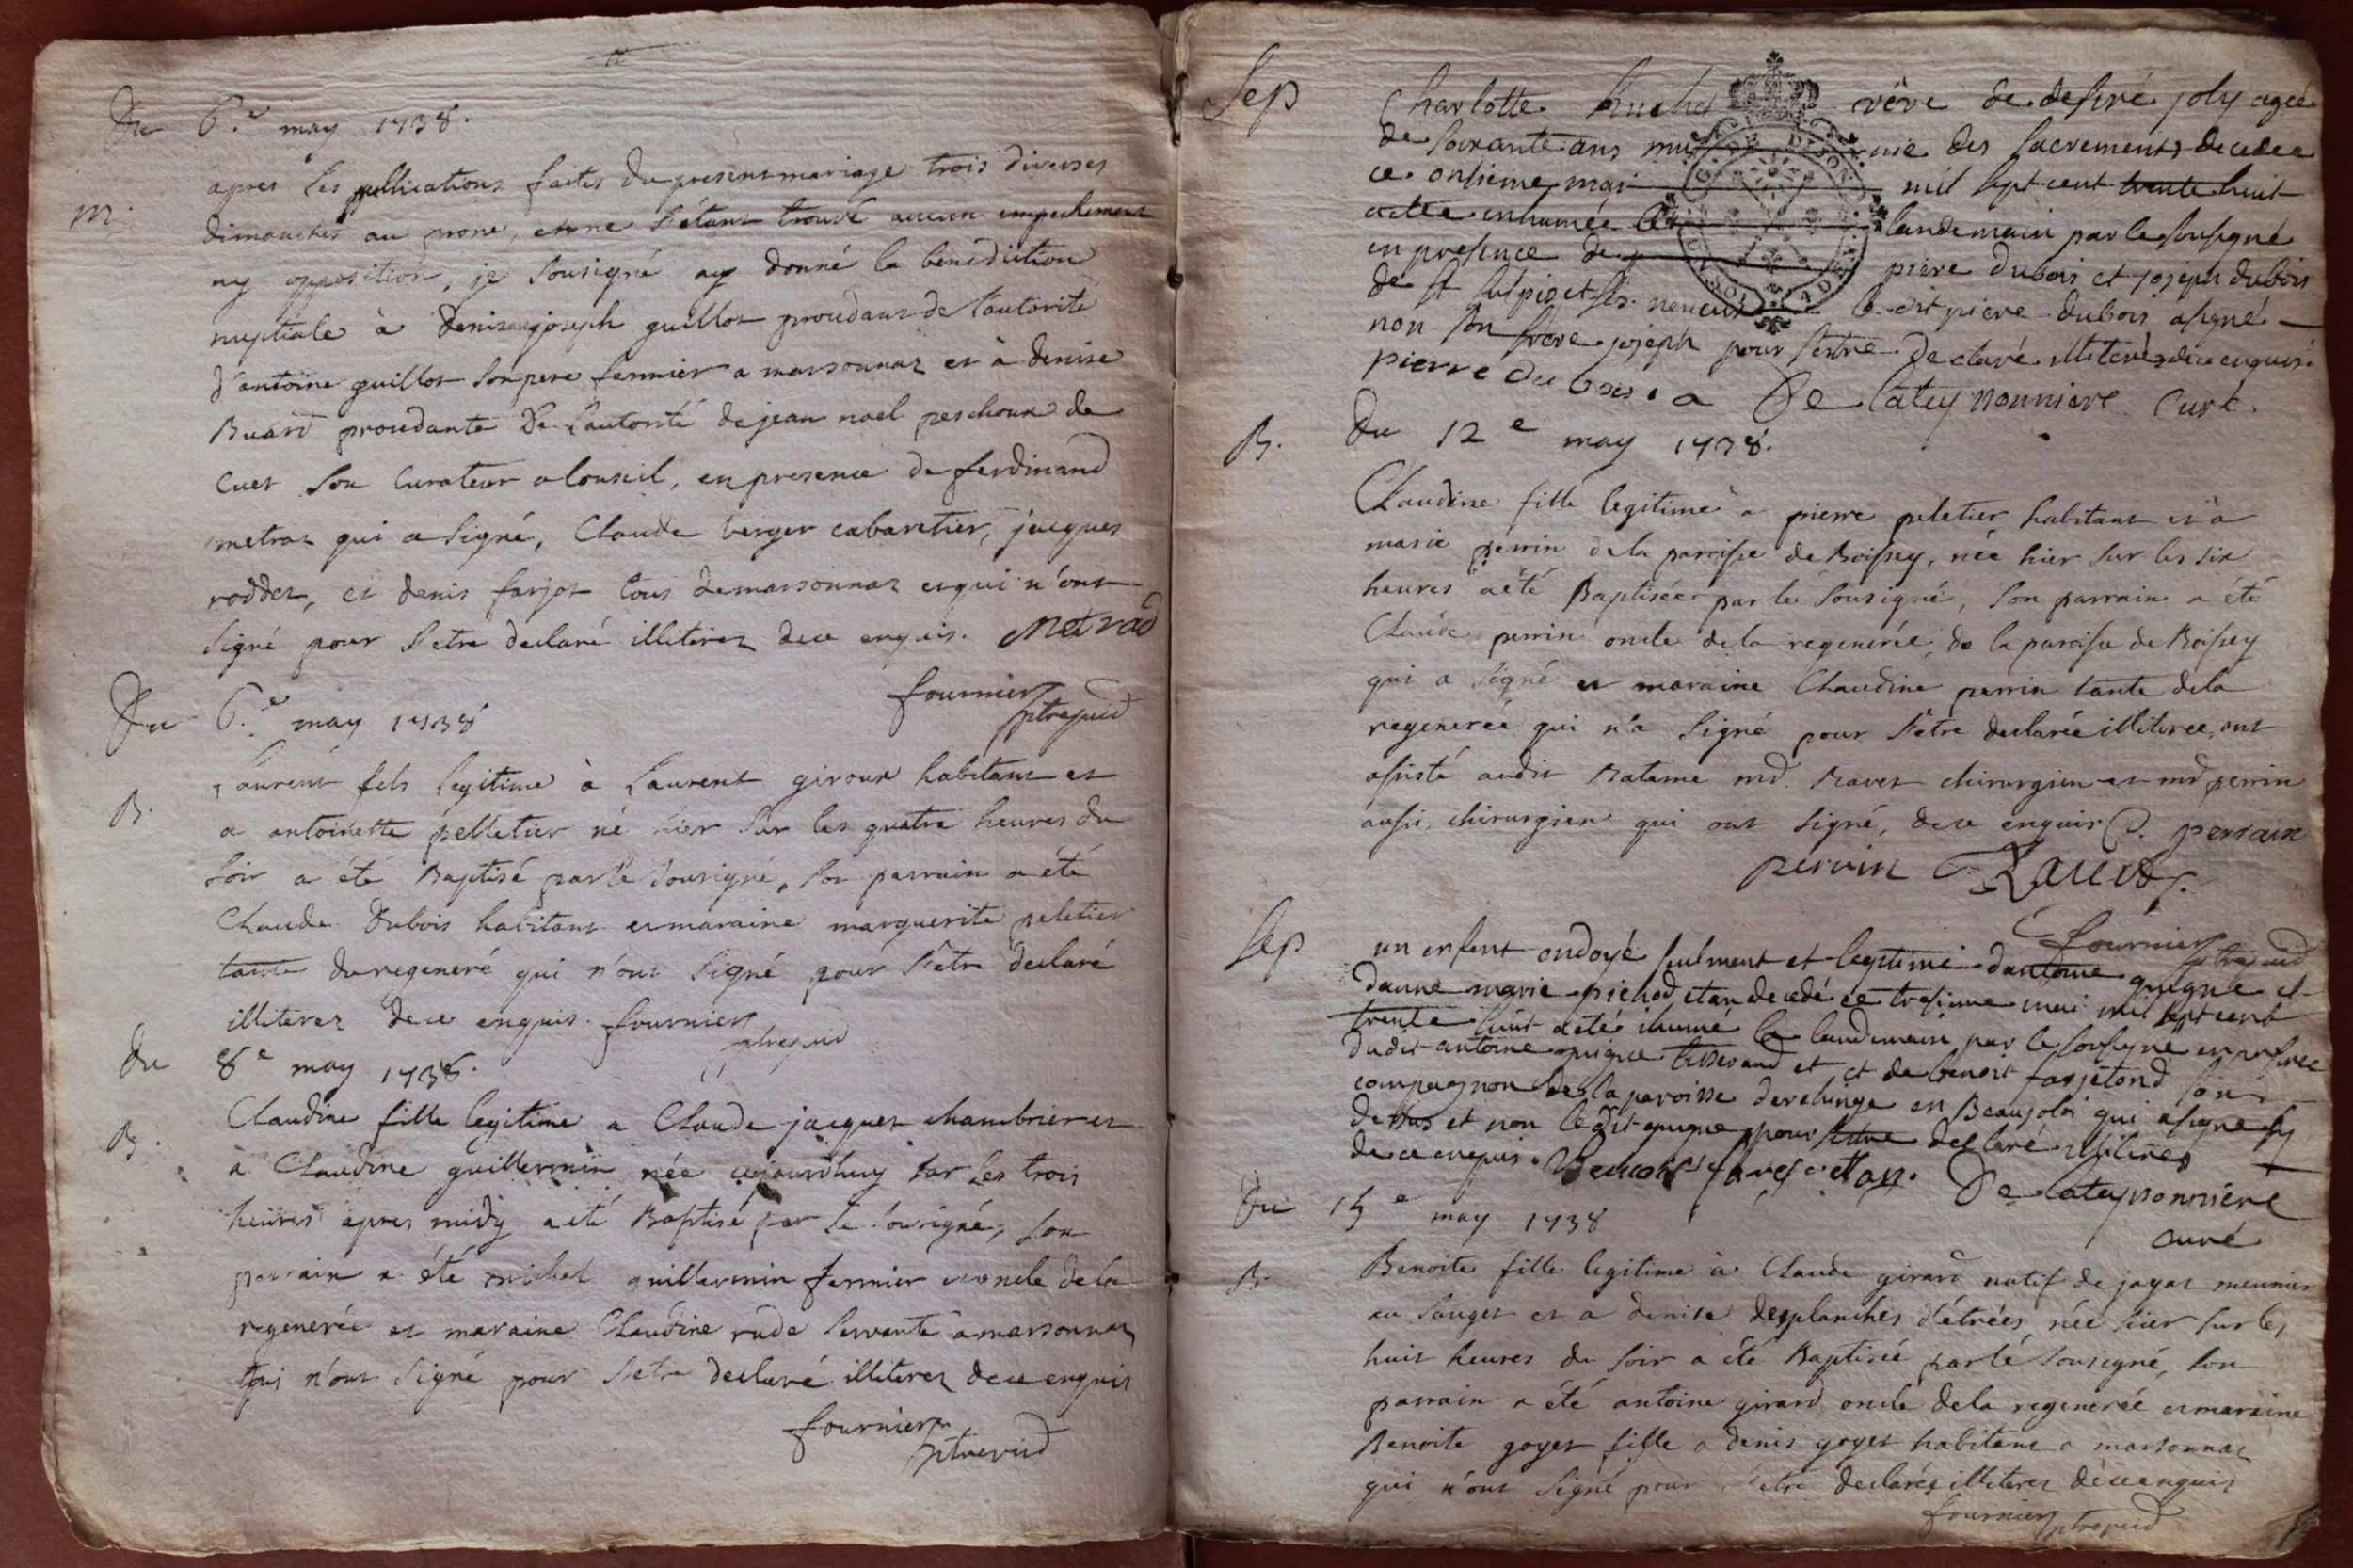 Du 6.e may 1738.
apres les publications faites du present mariage trois diverses
m.
dimanches au prone, et ne s'étant trouvé aucun empechement
ny opposition, je sousigné ay donné la benediction
nuptiale à denis joseph guillot procedant de l'autorité
d'antoine guillot son pere fermier a marsonnaz et à denise
Buard procedante de l'autorité de jean noel peschoux de
Cuet son curateur a conseil, en presence de ferdinand
metraz qui a signé, Claude berger cabaretier, jacques
roddet, et denis farjot tous de marsonnaz et qui n'ont
signé pour s'etre declaré illiterez de ce enquis. Metrad
fournier
Du 6.e may 1738
Laurent fils legitime à Laurent giroux habitant et
B.
a antoinette pelletier né hier sur les quatre heures du
soir a été Baptisé par le sousigné, son parrain a été
Claude Dubois habitant et maraine marguerite peletier
tante du regeneré qui n'ont signé pour s'etre declaré
illiterez de ce enquis. fournier
du 8e may 1738.
Claudine fille legitime a Claude jacques chambrier et
B.
à Claudine guillermin née cejourdhuy sur les trois
heures apres midy a été Baptisé par le sousigné, son
parrain a été michel guillermin fermier oncle de la
regenerée et maraine Claudine rude servante a marsonnaz
qui n'ont signé pour s'etre declaré illiterez de ce enquis
fournier
Sep
Charlotte veve de desiré joly agée
de soixante ans munie des sacrements decedee
ce onsieme mai mil sept cent trente huit
a ette inhumée le landemain par le sousigné
en presence de piere dubois et joseph dubois
de st sulpis et ses neveux le dit piere dubois a signé
non son frere joseph pour s'estre declaré illiteré de ce enquis
pierre du bois. De lateyssonniere Curé.
B.
Du 12e may 1738.
Claudine fille legitime à pierre peletier habitant et à
marie perrin de la paroisse de Boissey, née hier sur les six
heures a été Baptisée par le sousigné, son parrain a été
Claude perrin oncle de la regenerée, de la paroisse de Boissey
qui a signé et maraine Claudine perrin tante de la
regenerée qui n'a signé pour s'etre declarée illiteree, ont
assisté audit Bateme md. Ravet chirurgien et md perrin
aussi chirurgien qui ont signé, de ce enquis C. perrain
perrin Ravet
fournier
Sep
un enfent ondoyé sulment et legitime dantoine guigue et
danne marie pichod etan decedé ce tresieme mai mil sept cent
trente huit a eté ihumé le landemain par le sousigne en presence
dudit antoine guigue tisserand et et de benoit farjetond son
compagnon de la paroisse en Beaujolois qui a signe sy
dessus et non le dit guigue pour s'etre desclaré illiteres
de ce enquis. Benoist farjetton. De lateyssonniere
curé
Du 15e may 1738
B.
Benoite fille legitime à Claude girard natif de jayat meunier
au sauget et a denise desplanches d'étrées, née hier sur les
huit heures du soir a été Baptisée par le sousigné, son
parrain a été antoine girard oncle de la regenerée et maraine
Benoite goyet fille a denis goyet habitant a marsonnaz
qui n'ont signé pour s'etre declarés illiterez de ce enquis
fournier